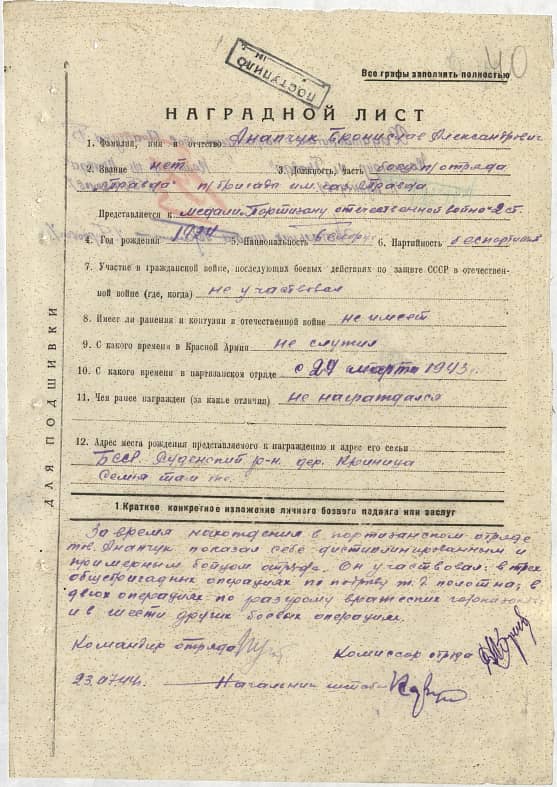 ПОСТУПИЛО
Все графы заполнить полностью
НАГРАДНОЙ ЛИСТ
1. Фамилия, имя и отчество Анапчук Бронислав Александрович
2. Звание нет 3. Должность, часть боец п/отряда
"Правда" п/бригада им. газ. Правда
Представляется к медали "Партизану отечественной войны" 2 ст.
4. Год рождения 1924 5. Национальность белорус 6. Партийность беспартийн
7. Участие в гражданской войне, последующих боевых действиях по защите СССР в отечествен-
ной войне (где, когда) не участвовал
8. Имеет ли ранения и контузии в отечественной войне не имеет
9. С какого времени в Красной Армии не служил
10. С какого времени в партизанском отряде с 29 марта 1943 г.
11. Чем ранее награжден (за какие отличия) не награждался
12. Адрес места рождения представляемого к награждению и адрес его семьи
БССР Руденский р-н. дер. Криница
Семья там же.
ДЛЯ ПОДШИВКИ
1. Краткое конкретное изложение личного боевого подвига или заслуг
За время нахождения в партизанском отряде
тов. Анапчук показал себе дисциплинированным и
примерным бойцом отряда. Он участвовал: в трех
общебригадных операциях по подрыву ж.д. полотна; в
двух операциях по разгрому вражеских гарнизонов
и в шести других боевых операциях.
Командир отряда Комиссар отряда
23.07.44г. Начальник штаба